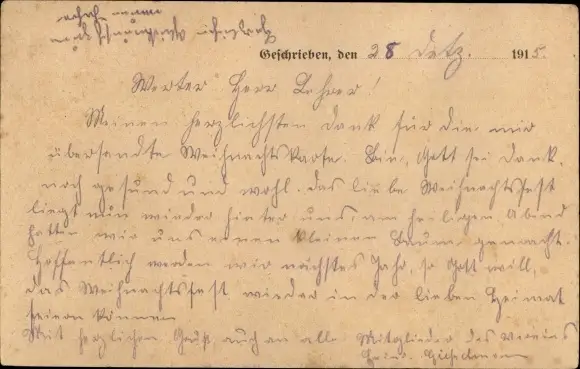 Geschrieben, den 28 Detz. 1915.
Werter Herr Lehrer!
Meinen herzlichsten Dank für die mir
übersandte Weihnachtskarte. Bin, Gott sei Dank,
noch gesund und wohl. Das liebe Weihnachtsfest
liegt nun wieder hinter uns, am heiligen Abend
hatten wir uns einen kleinen Baum gemacht.
Hoffentlich werden wir nächstes Jahr, so Gott will,
das Weihnachtsfest wieder in der lieben Heimat
feiern können
Mit herzlichen Gruß auch an alle Mitglieder des Vereins